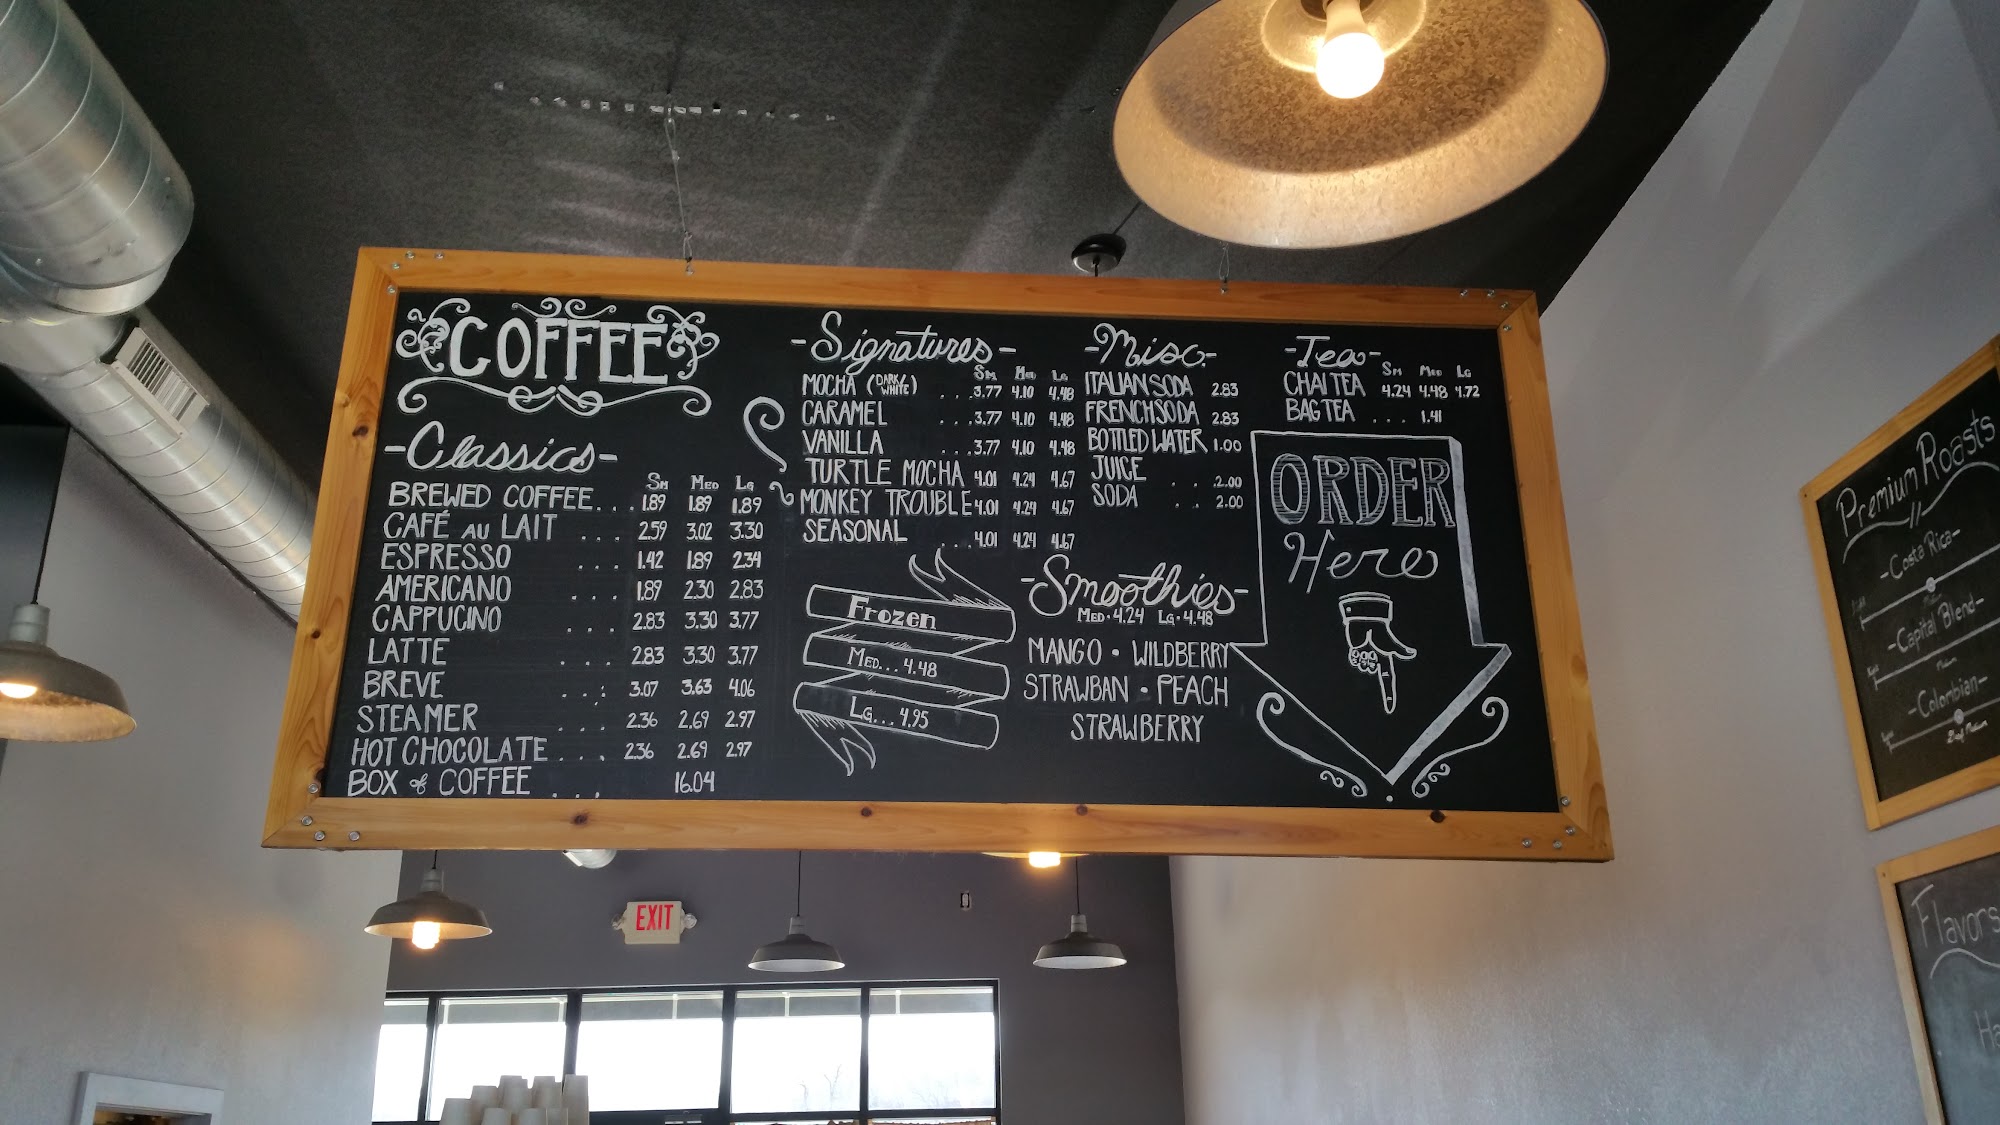 COFFEE
-Classics-
Sm Med Lg
BREWED COFFEE... 1.89 1.89 1.89
CAFÉ AU LAIT ... 2.59 3.02 3.30
ESPRESSO ... 1.42 1.89 2.34
AMERICANO ... 1.89 2.30 2.83
CAPPUCINO ... 2.83 3.30 3.77
LATTE ... 2.83 3.30 3.77
BREVE ... 3.07 3.63 4.06
STEAMER ... 2.36 2.69 2.97
HOT CHOCOLATE ... 2.36 2.69 2.97
BOX of COFFEE ... 16.04
-Signatures-
Sm Med Lg
MOCHA (DARK/WHITE) ...3.77 4.10 4.48
CARAMEL ...3.77 4.10 4.48
VANILLA ...3.77 4.10 4.48
TURTLE MOCHA 4.01 4.24 4.67
MONKEY TROUBLE 4.01 4.24 4.67
SEASONAL ...4.01 4.24 4.67
Frozen
Med... 4.48
Lg... 4.95
-Misc.-
ITALIAN SODA 2.83
FRENCH SODA 2.83
BOTTLED WATER 1.00
JUICE ...2.00
SODA .. 2.00
-Smoothies-
Med·4.24 Lg·4.48
MANGO • WILDBERRY
STRAWBAN • PEACH
STRAWBERRY
-Tea-
Sm Med Lg
CHAI TEA 4.24 4.48 4.72
BAG TEA ... 1.41
ORDER
Here
Premium Roasts
-Costa Rica-
-Capital Blend-
-Colombian-
Flavors
EXIT